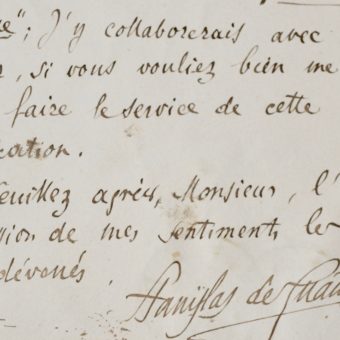 e" ; J'y collaborerais avec
, si vous vouliez bien me
faire le service de cette
cation.
Veuillez agréer, Monsieur, l'
sion de mes sentiments les
dévoués.
Stanislas de Guai